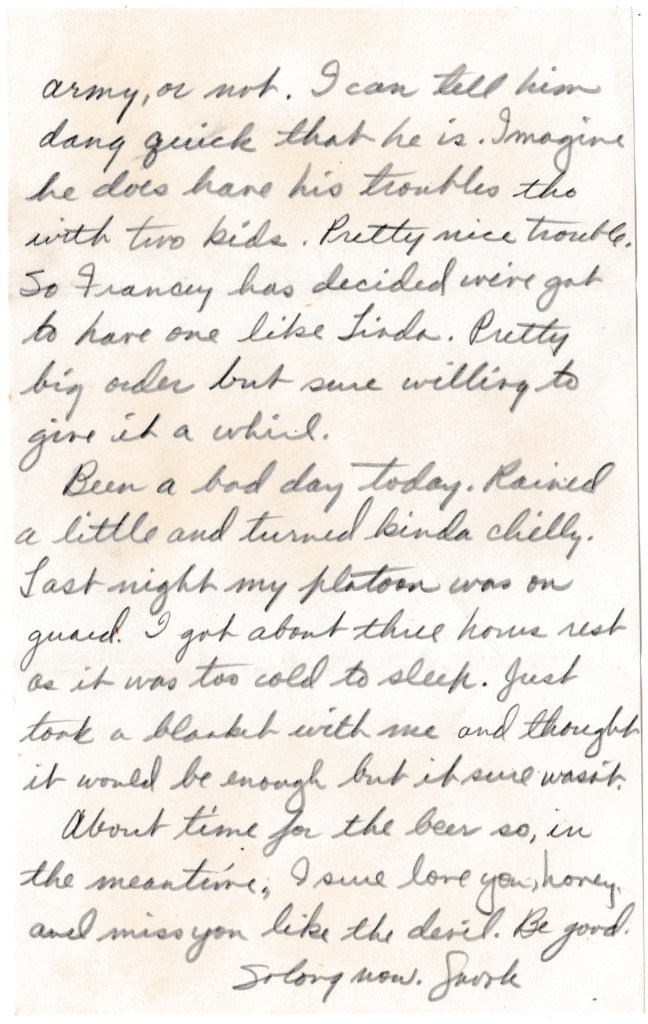 army, or not. I can tell him
dang quick that he is. Imagine
he does have his troubles tho
with two kids. Pretty nice trouble.
So Francey has decided we've got
to have one like Linda. Pretty
big order but sure willing to
give it a whirl.
Been a bad day today. Rained
a little and turned kinda chilly.
Last night my platoon was on
guard. I got about three hours rest
as it was too cold to sleep. Just
took a blanket with me and thought
it would be enough but it sure wasn't.
About time for the beer so, in
the meantime, I sure love you, honey,
and miss you like the devil. Be good.
So long now.